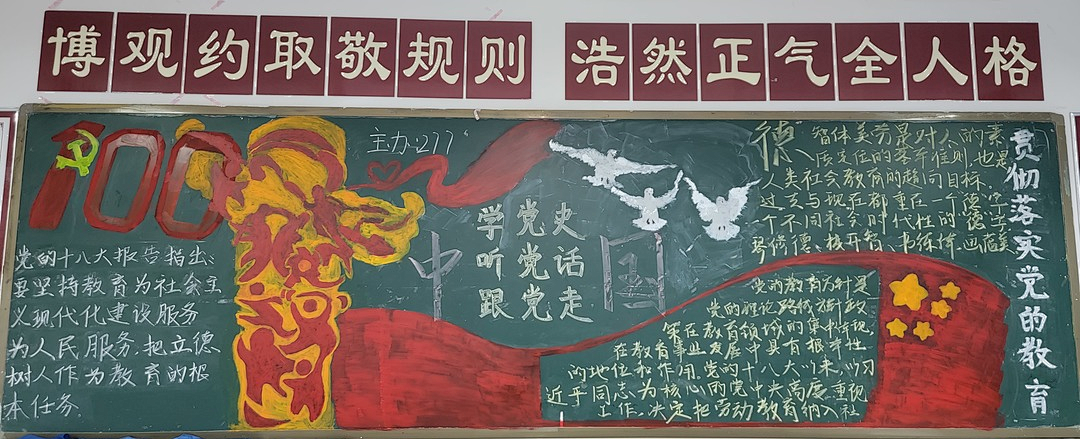 博观约取敬规则 浩然正气全人格
100
主办:277
党的十八大报告指出:
要坚持教育为社会主
义现代化建设服务
为人民服务.把立德
树人作为教育的根
本任务.
中国
学党史
听党话
跟党走
德智体美劳是对人的素
人类社会教育的趋向目标.
过去与现在都重在一个德字
个不同社会时代性的德字
琴倍德、棋开智、书练体、画
党的教育方针是
党的理论路线方针政
策在教育领域的集中体现,
在教育事业发展中具有根本性
的地位和作用.党的十八大以来,以习
近平同志为核心的党中央高度重视
工作,决定把劳动教育纳入社
贯彻落实党的教育